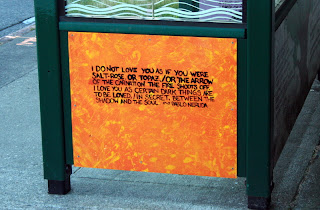 I DO NOT LOVE YOU AS IF YOU WERE
SALT-ROSE OR TOPAZ,/OR THE ARROW
OF CARNATION THE FIRE SHOOTS OFF.
I LOVE YOU AS CERTAIN DARK THINGS ARE
TO BE LOVED,/IN SECRET, BETWEEN THE
SHADOW AND THE SOUL. PABLO NERUDA